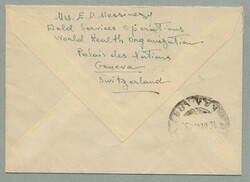 Mrs. E. D. Messinezy
Field Services Operations
World Health Organization
Palais des Nations
Geneva
Switzerland